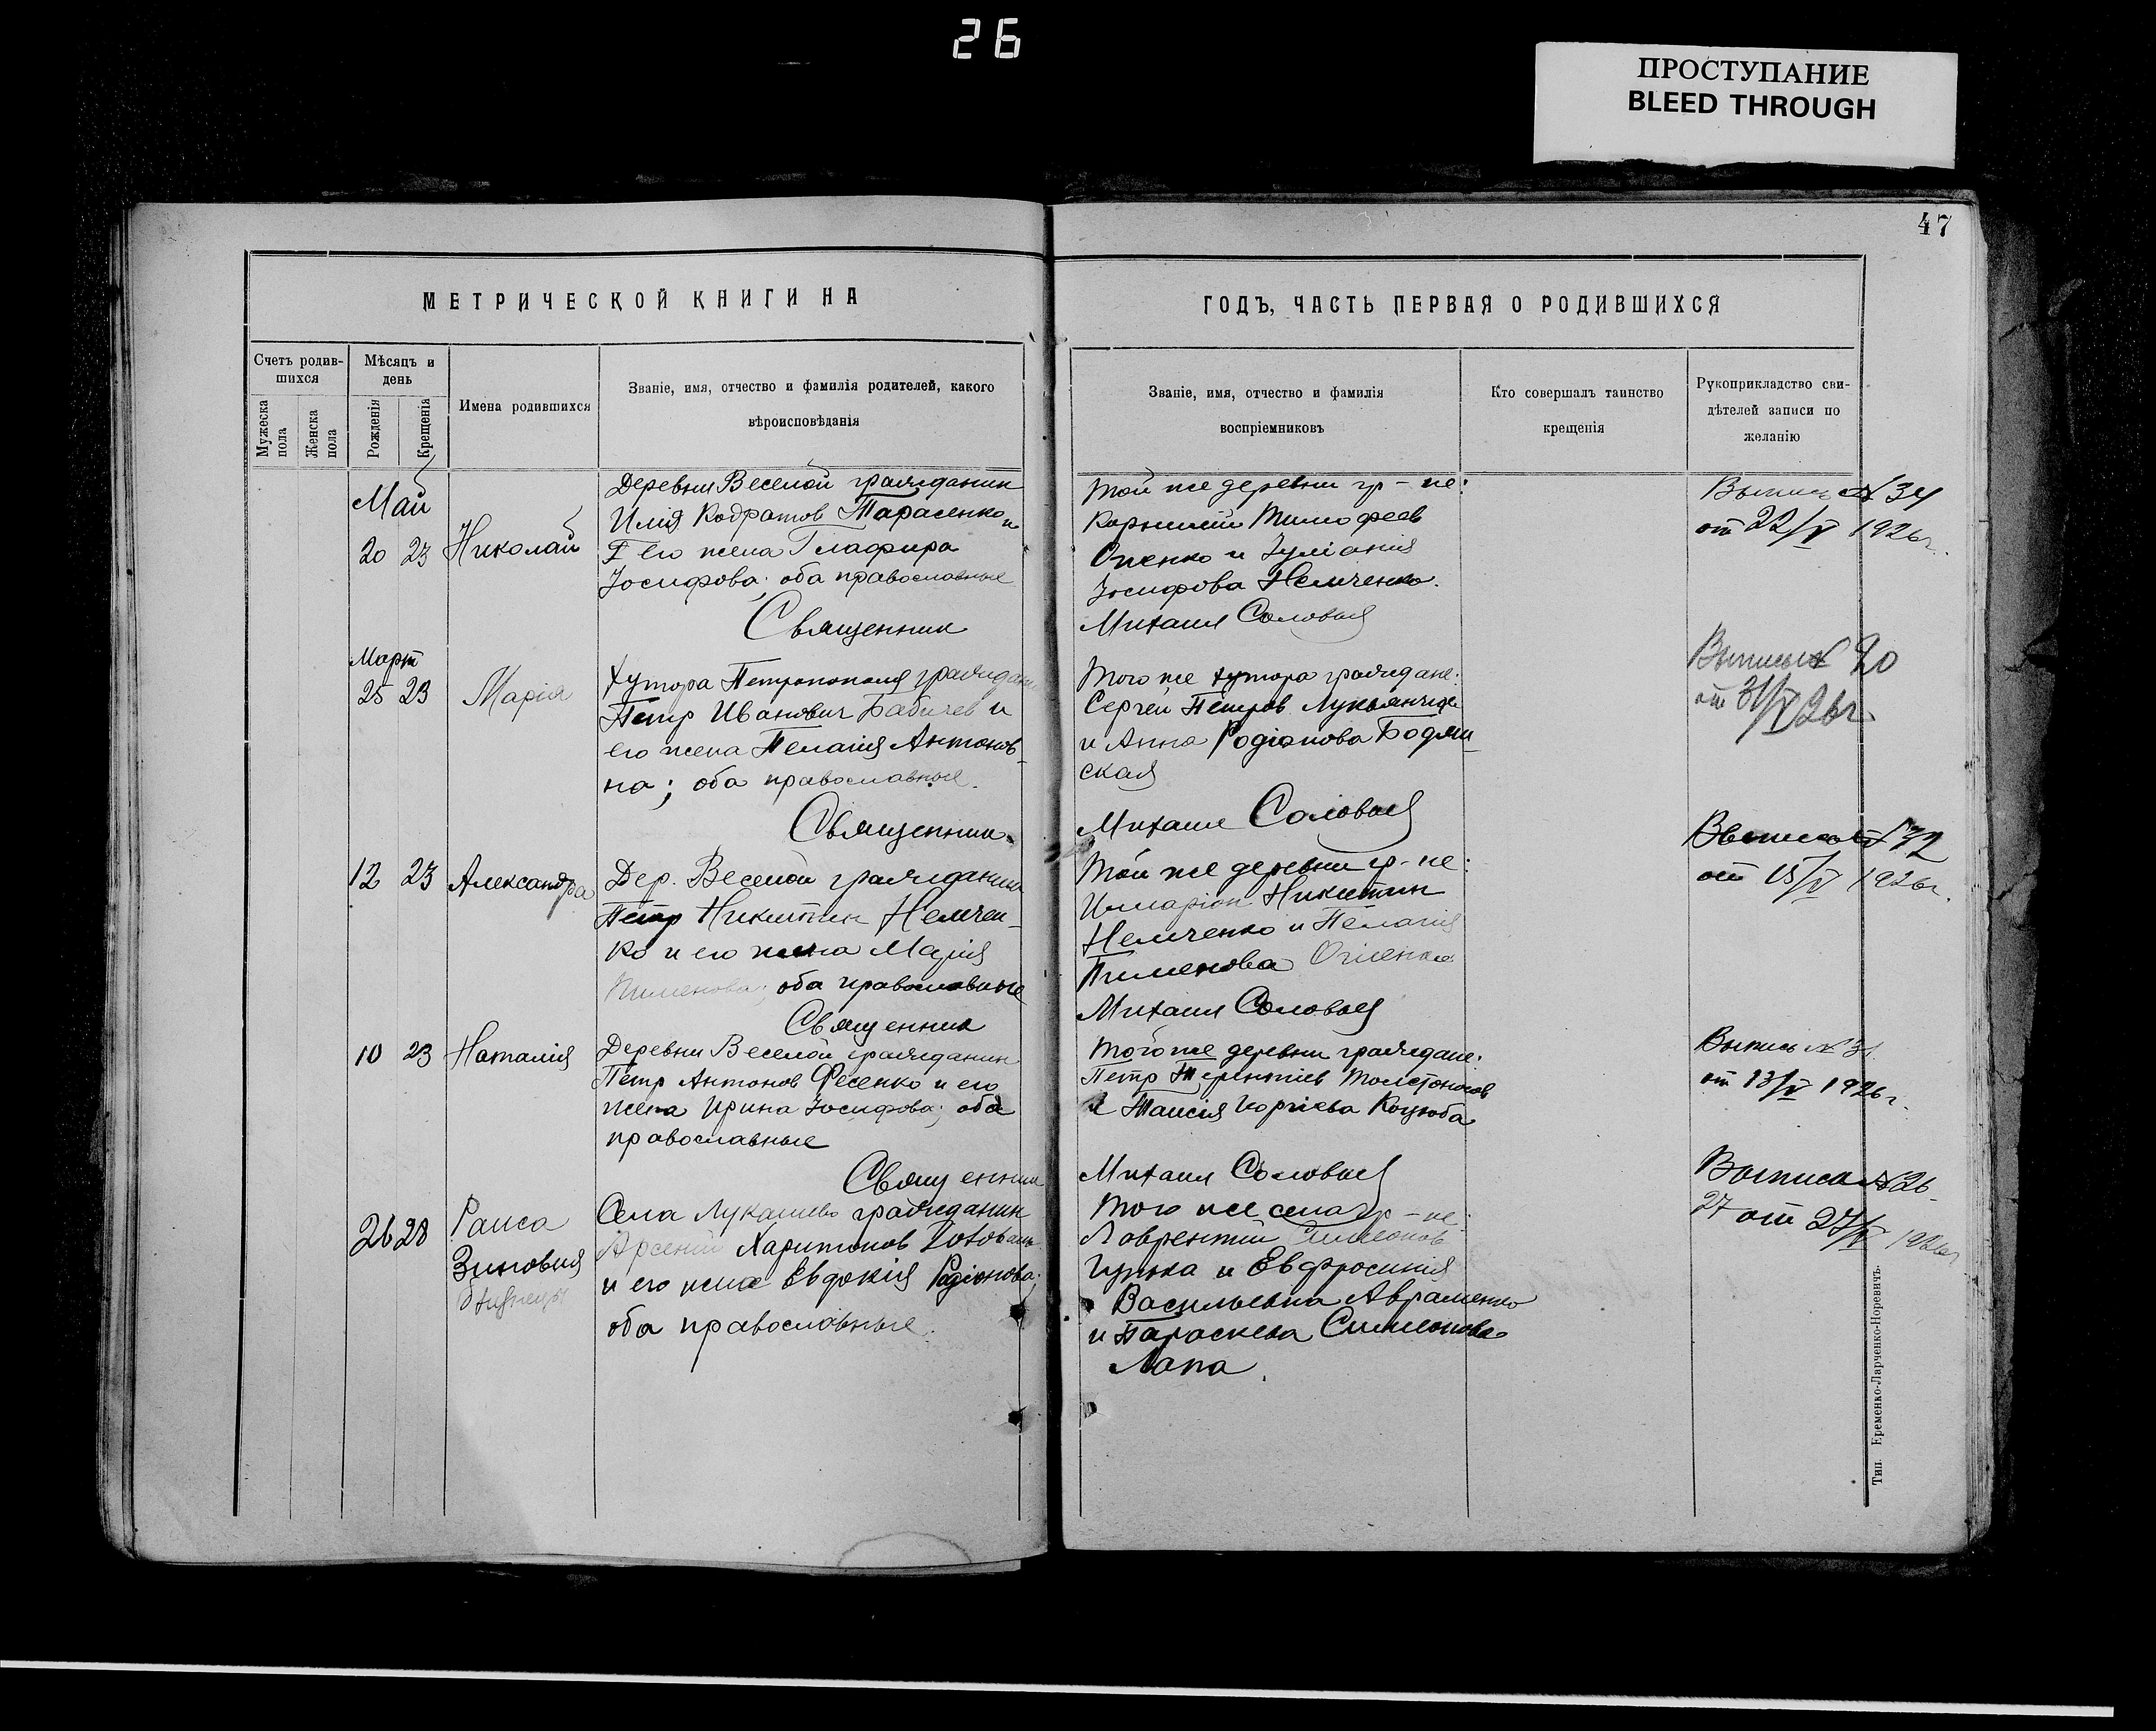 26
ПРОСТУПАНИЕ
BLEED THROUGH
47
МЕТРИЧЕСКОЙ КНИГИ НА
ГОДЪ, ЧАСТЬ ПЕРВАЯ О РОДИВШИХСЯ
Счетъ родив-
шихся
Мужеска
пола
Женска
пола
Мѣсяцъ и
день
Рожденія
Крещенія
Имена родившихся
Званіе, имя, отчество и фамилія родителей, какого
вѣроисповѣданія
Званіе, имя, отчество и фамилія
воспріемниковъ
Кто совершалъ таинство
крещенія
Рукоприкладство сви-
дѣтелей записи по
желанію
Май
20 23
Николай
Деревни Веселой гражданин
Илія Кодратов Тарасенко и
его жена Глафира
Іосифова; оба православные
Священник
Той же деревни гр-не:
Корнилій Тимофеев
Оненко и Іуліанія
Іосифова Немченко.
Михаил Соловьев
Выпись № 34
от 22/V 1926г.
Март
25 23
Марія
Хутора Петрополя граждан
Петр Иванович Бабичев и
его жена Пелагія Антонов-
на; оба православные.
Священник
Того же хутора граждане:
Сергей Петров
и Анна Родіонова Бодян-
ская
Михаил Соловьев
Выпись №
от 31/V 26г.
12 23
Александра
Дер. Веселой гражданин
Петр Никитин Немчен-
ко и его жена Марія
Пименова; оба православные
Священник
Той же деревни гр-не:
Иларіон Никитин
Немченко и Пелагія
Пименова
Михаил Соловьев
Выпись № 32
от 15/V 1926г.
10 23
Наталія
Деревни Веселой гражданин
Петр Антонов Фесенко и его
жена Ирина Іосифова; оба
православные
Священник
Того же деревни граждане:
Петр Терентіев Толстоногов
и Таисія Георгіева Коцюба
Михаил Соловьев
Выпись № 31
от 13/V 1926г.
26 28
Раиса
Зиновия
близнецы
Села Лукашево гражданин
Арсеній Харитонов
и его жена Евдокія Родіонова;
оба православные.
Того же села гр-не:
Лаврентій Симеонов
и Евфросинія
Васильевна Авраменко
и Параскева Симеонова
Лапа.
Выписи № 26-
27 от 27/V 1926г
Тип. Еременко-Ларченко-Норевичъ.